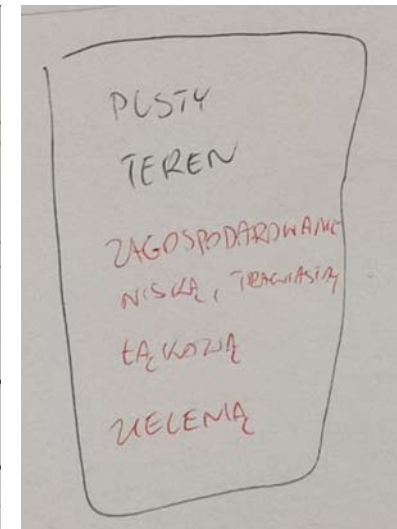 PUSTY
TEREN
ZAGOSPODAROWANIE
NISKĄ, TRAWIASTĄ
ŁĄKOWĄ
ZIELENIĄ